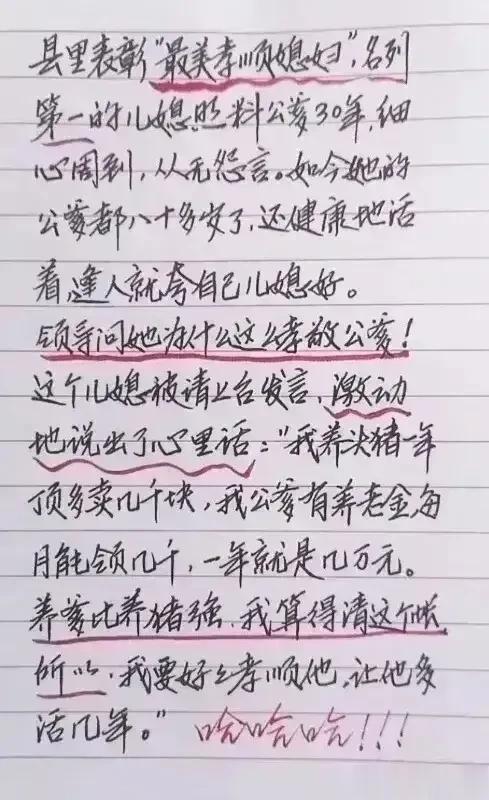 县里表彰“最美孝顺媳妇”,名列
第一的儿媳,照料公爹30年,细
心周到,从无怨言。如今她的
公爹都八十多岁了,还健康地活
着,逢人就夸自己儿媳好。
领导问她为什么这么孝敬公爹!
这个儿媳被请上台发言,激动
地说出了心里话:“我养头猪一年
顶多卖几千块,我公爹有养老金,每
月能领几千,一年就是几万元。
养爹比养猪强,我算得清这个帐
所以,我要好么孝顺他,让他多
活几年。” 哈哈哈!!!